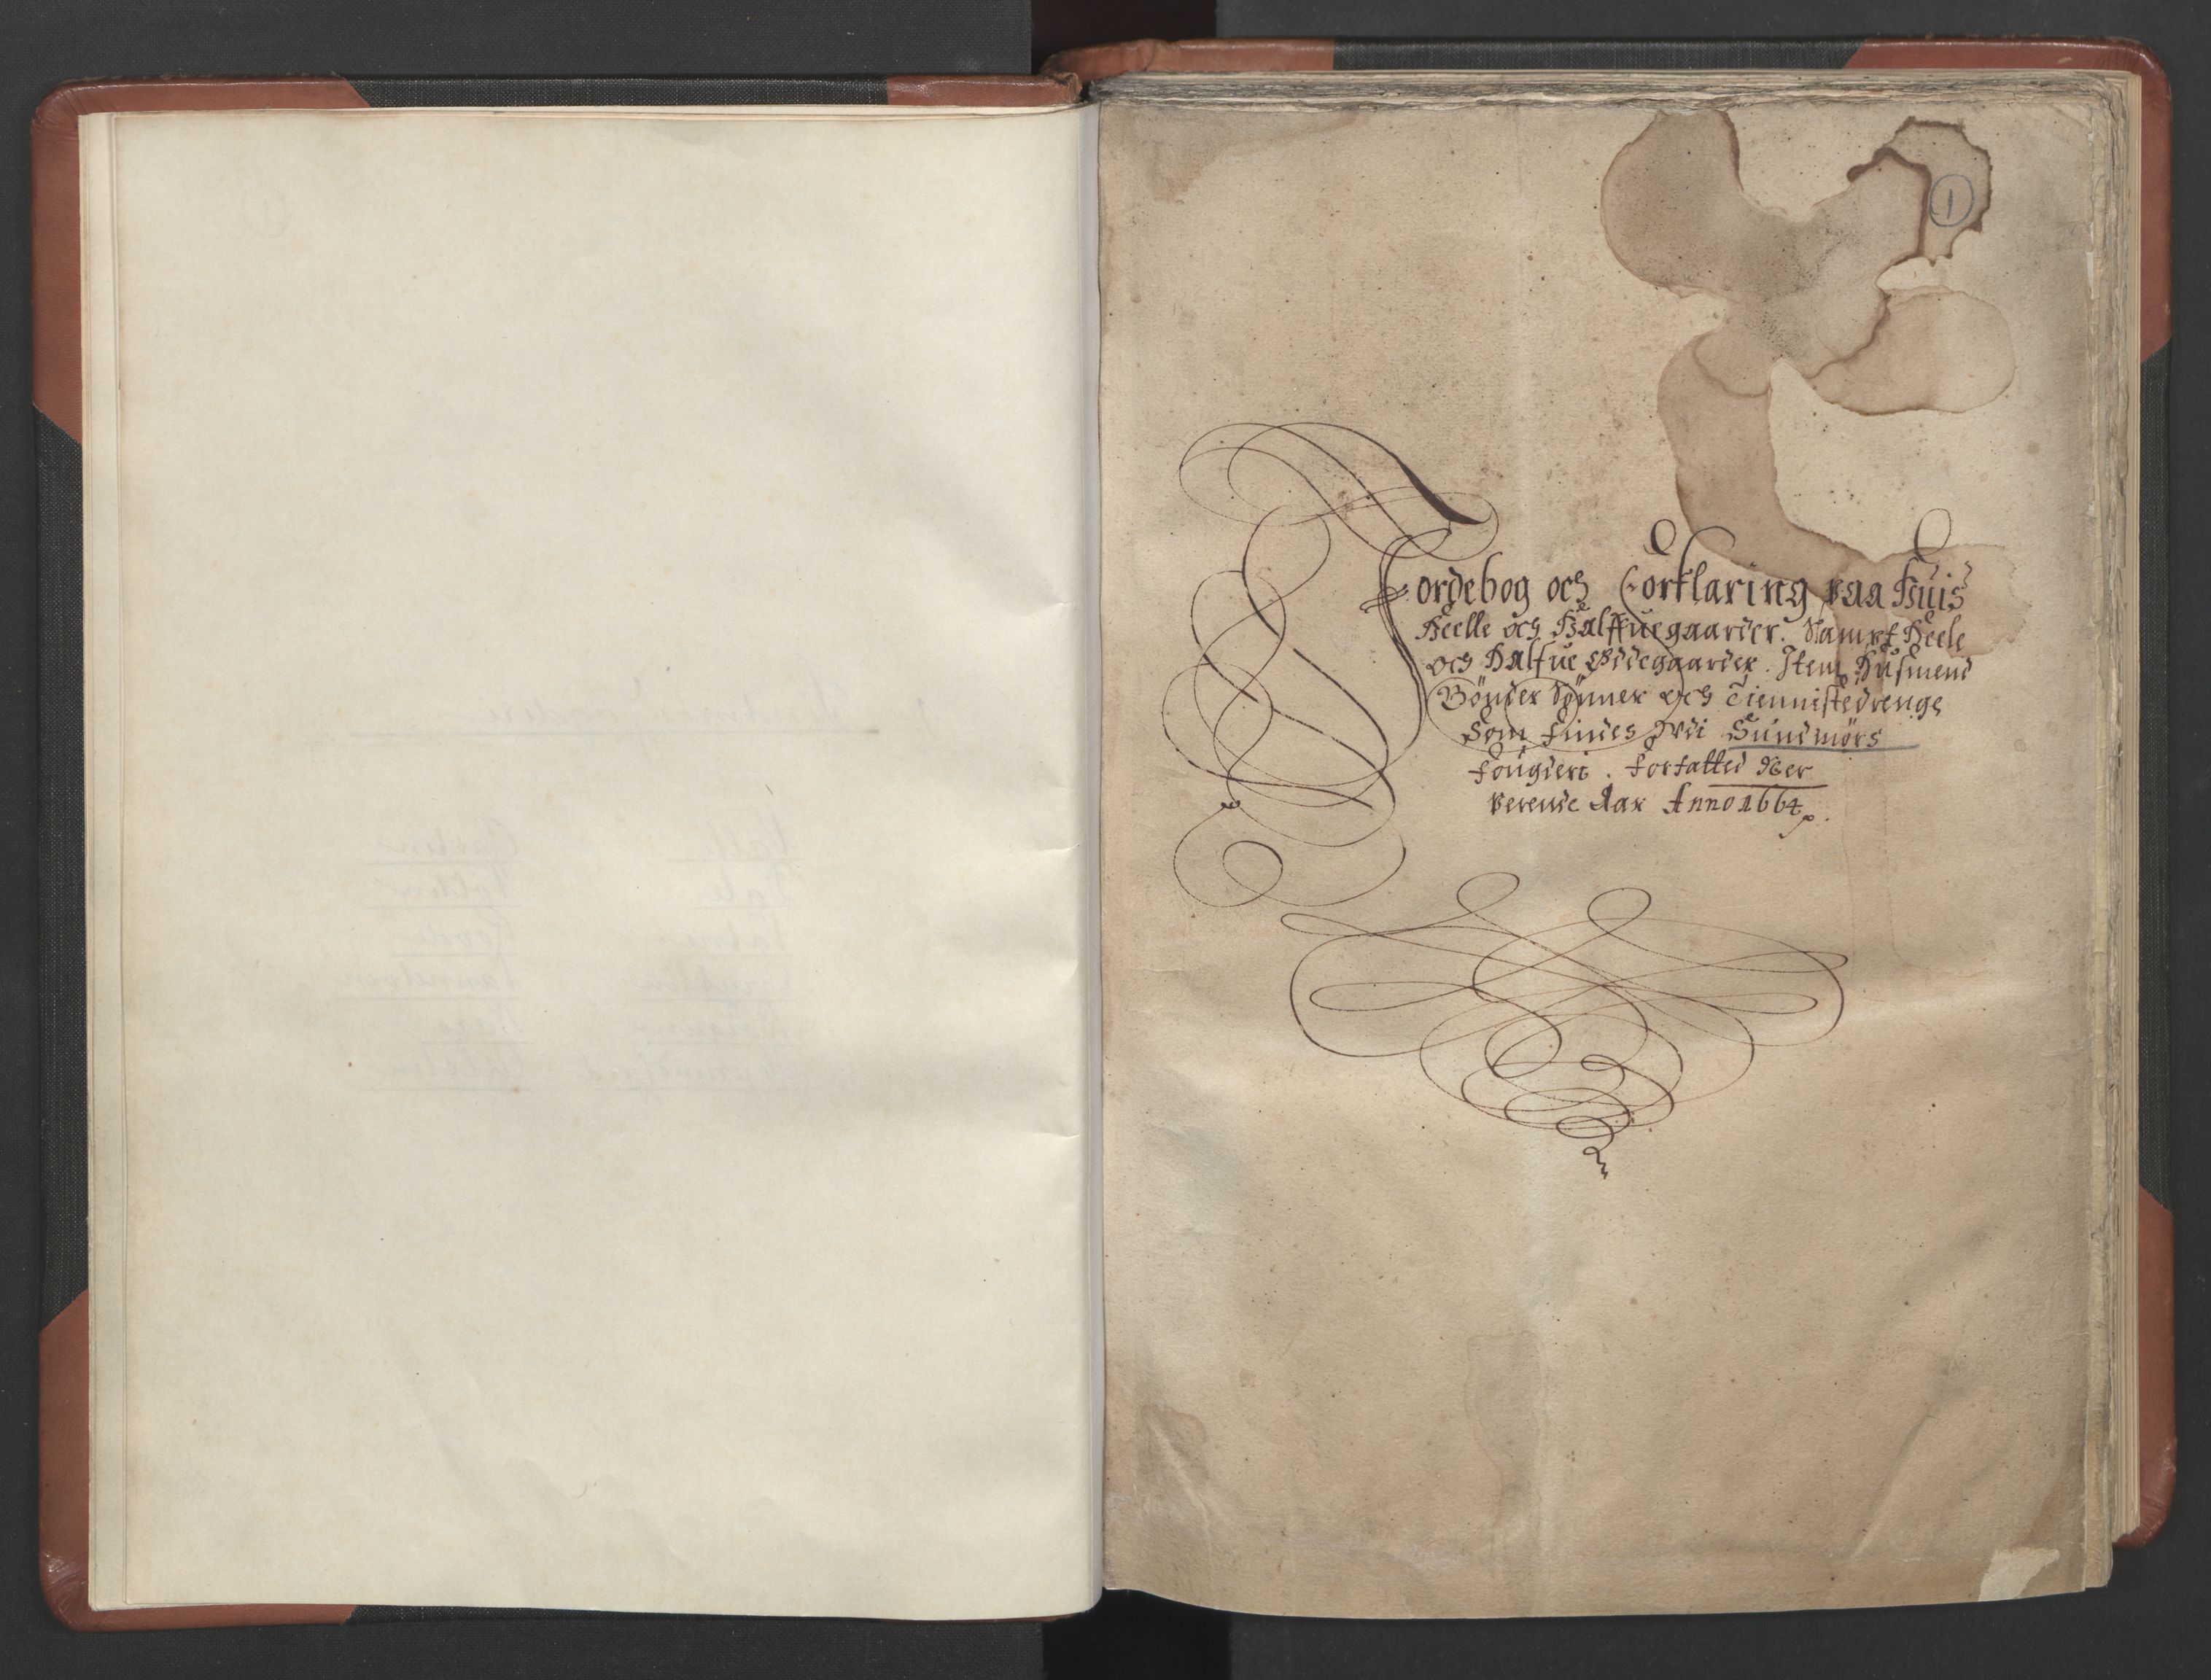 1
Jordebog och Forklaring paa huis
Heelle och Halffuegaarder. Sampt Heele
och Halfue Ødegaarder. Item Husmend
Bönder Sönner och Tiennistedrenge
Som findes Vdi Sundmörs
fougderi. forfatted Ner
verende Aar Anno 1664